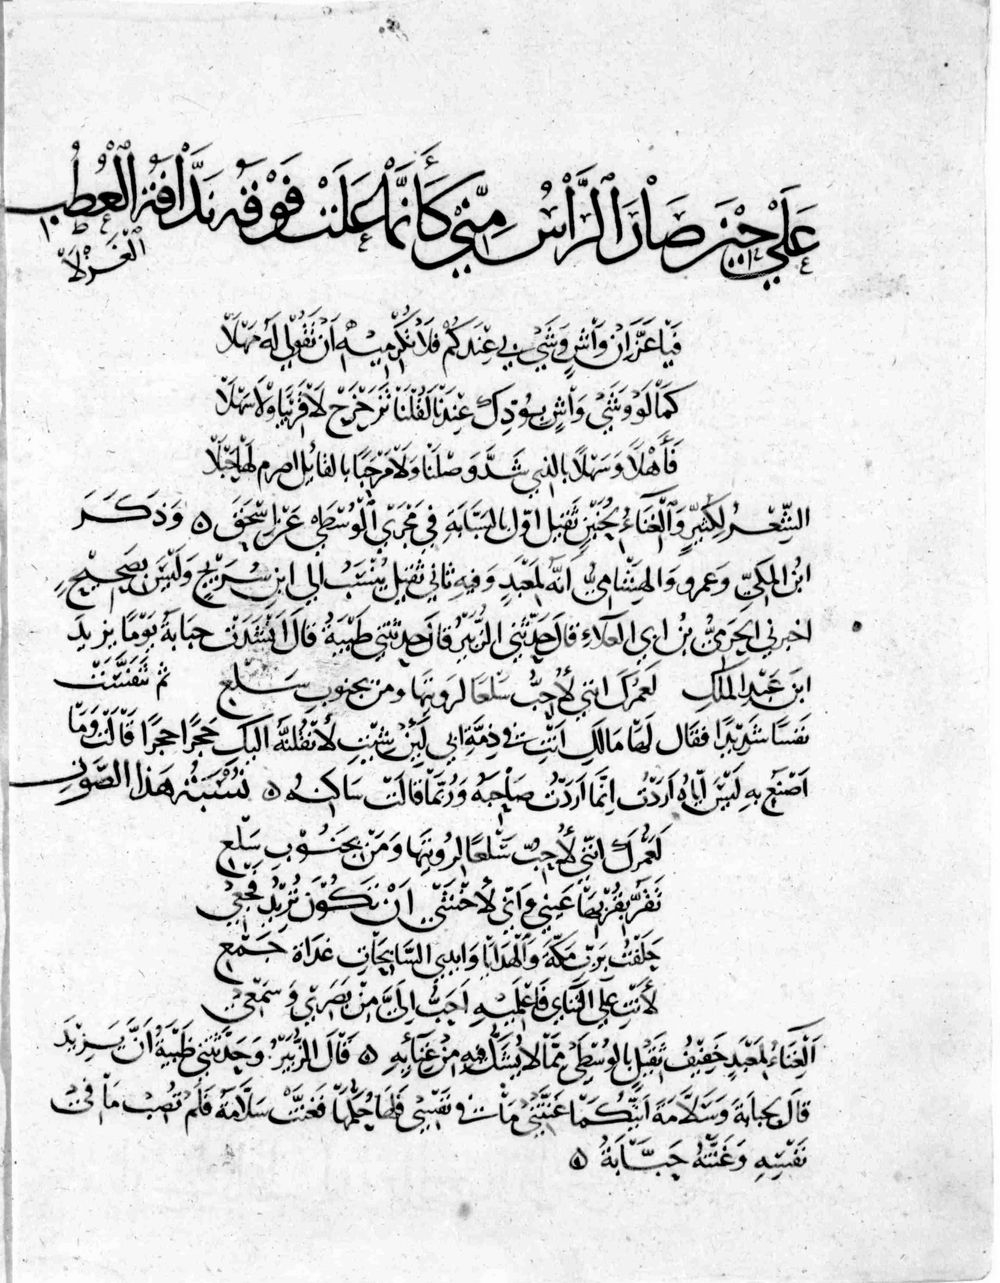 عَلَي حِيْنَ صَارَ الرَّأسُ مِنّي كَأَنَّمَا عَلَتْ فَوْقَهُ نَدَّافَةُ الْعُطْبِ
الْغَزْلَا
فَيَا عَزَّ اَنْ وَاْشٍ وَشَي بي عِنْدَكُمْ فَلَا تُكْرِمِيْهِ اَنْ تَقُوْلي لَهُ مَهْلَا
كَمَا لَوْ وَشَي وَاْشٍ بِوُدِّكِ عِنْدَنَا لَقُلْنَا تَزَحْزَحْ لَا قَرِيْبًا وَلَا سَهْلَا
فَأَهْلًا وَسَهْلًا بالذي شَدَّ وَصْلَنَا وَلَا مَرْحَبًا بالقائل اصرم لها حَبْلَا
الشِّعْرُ لِكُثَيِّرٍ وَالْغِنَاءُ لِحُنَيْنٍ ثَقِيْل اوّل بالسَّبَّابَةِ في مَجْرَي الْوُسْطَي عَنْ اِسْحَقَ ۵ وَذكَرَ
ابنُ المكيّ وَعمرو وَالهِشَامِيُّ اَنَّهُ لمَعْبَدٍ وَفيهِ ثَاني ثَقِيل يُنْسَبُ الي ابنِ سُرَيْجٍ وَلَيْسَ بصَحِيْحٍ
اخبرني الحَرَميُّ بْنُ ابي العَلاءِ قالَ حَدَّثني الزُّبَيْرُ قالَ حَدثتني ظَبْيَةُ قالَ اَنْشَدَتْ حَبَابَةُ يَوْمًا يزيدَ
ابنَ عَبْدِ المَلكِ لعَمْرُكَ انني لَأُحِبُّ سَلْعَا لرؤيتهَا ومن بجنوبِ سَلْعِ ثم تَنَفَّسَتْ
نَفَسًا شَدِيْدًا فقَال لَهَا مَا لَكِ اَنْتِ في ذِمَّةِ ابي لَئِنْ شِئْتِ لَأَنْقُلَنَّهُ اليكِ حَجَرًا حجرًا قَالَتْ وَمَا
اَصْنَعُ بهِ لَيْسَ اِيّاهُ اَرَدْتُ اِنَّمَا اَرَدْتُ صَاحِبَهُ وَرُبَّمَا قالَتْ سَاكِنَهُ ۵ نِسْبَةُ هَذَا الصَّوْتِ
لَعَمْرُكَ اِنَّني لَأُحِبُّ سَلْعًا لِرُؤيَتِهَا وَمَنْ بجَنُوْبِ سَلْعِ
تَقَرُّ بقُرْبهَا عَيني وَاِنّي لَأَخْشَي اَنْ تَكُوْنَ تُرِيْدُ فَجْعِي
حَلَفْتُ بِرَبِّ مَكَّةَ وَالْهَدَايَا وَايدي السَّابحَاتِ غَدَاةَ جَمْعِ
لَأَنْتِ عَلَي التَّنَائِي فَاعْلَمِيْهِ اَحَبُّ اِلَيَّ مِنْ بَصَرِي وَسَمْعِي
الْغِنَاءُ لمَعْبَدٍ خَفِيْفُ ثَقِيْل بالوُسْطَي ممَّا لا يُشَكُّ فيهِ مِنْ غِنَائِهِ ۵ قَالَ الزُّبَيْرُ وَحَدَّثَتْني ظَبْيَةُ اَنَّ يَزِيْدَ
قالَ لحبابَةَ وَسَلَّامَةَ اَيَّتُكُمَا غَنَّتْني مَا في نَفْسِي فَلَهَا حُكْمُهَا فَغَنَّتْ سَلَّامَةُ فَلَمْ تُصِبْ مَا في
نَفْسِهِ وَغَنَّتْهُ حَبَابَةُ ۵